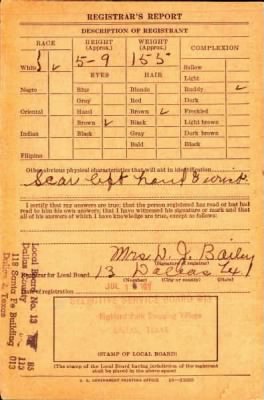 REGISTRAR'S REPORT
DESCRIPTION OF REGISTRANT
RACE HEIGHT (Approx.) WEIGHT (Approx.) COMPLEXION
White ✓ 5-9 155 Sallow
EYES HAIR Light
Negro Blue Blonde Ruddy ✓
Gray Red Dark
Oriental Hazel Brown ✓ Freckled
Brown ✓ Black Light brown
Indian Black Gray Dark brown
Bald Black
Filipino
Other obvious physical characteristics that will aid in identification
Scar left hand & wrist
I certify that my answers are true; that the person registered has read or has had
read to him his own answers; that I have witnessed his signature or mark and that
all of his answers of which I have knowledge are true, except as follows:
Mrs. D. J. Bailey
(Signature of registrar)
Registrar for Local Board 13 Dallas
of registration JUL
Local Board No. 13 85
Dallas County 113
118 Santa Fe Building 013
Dallas, Texas
Highland Park Shopping Village
DALLAS, TEXAS
(STAMP OF LOCAL BOARD)
(The stamp of the Local Board having jurisdiction of the registrant
shall be placed in the above space)
U. S. GOVERNMENT PRINTING OFFICE